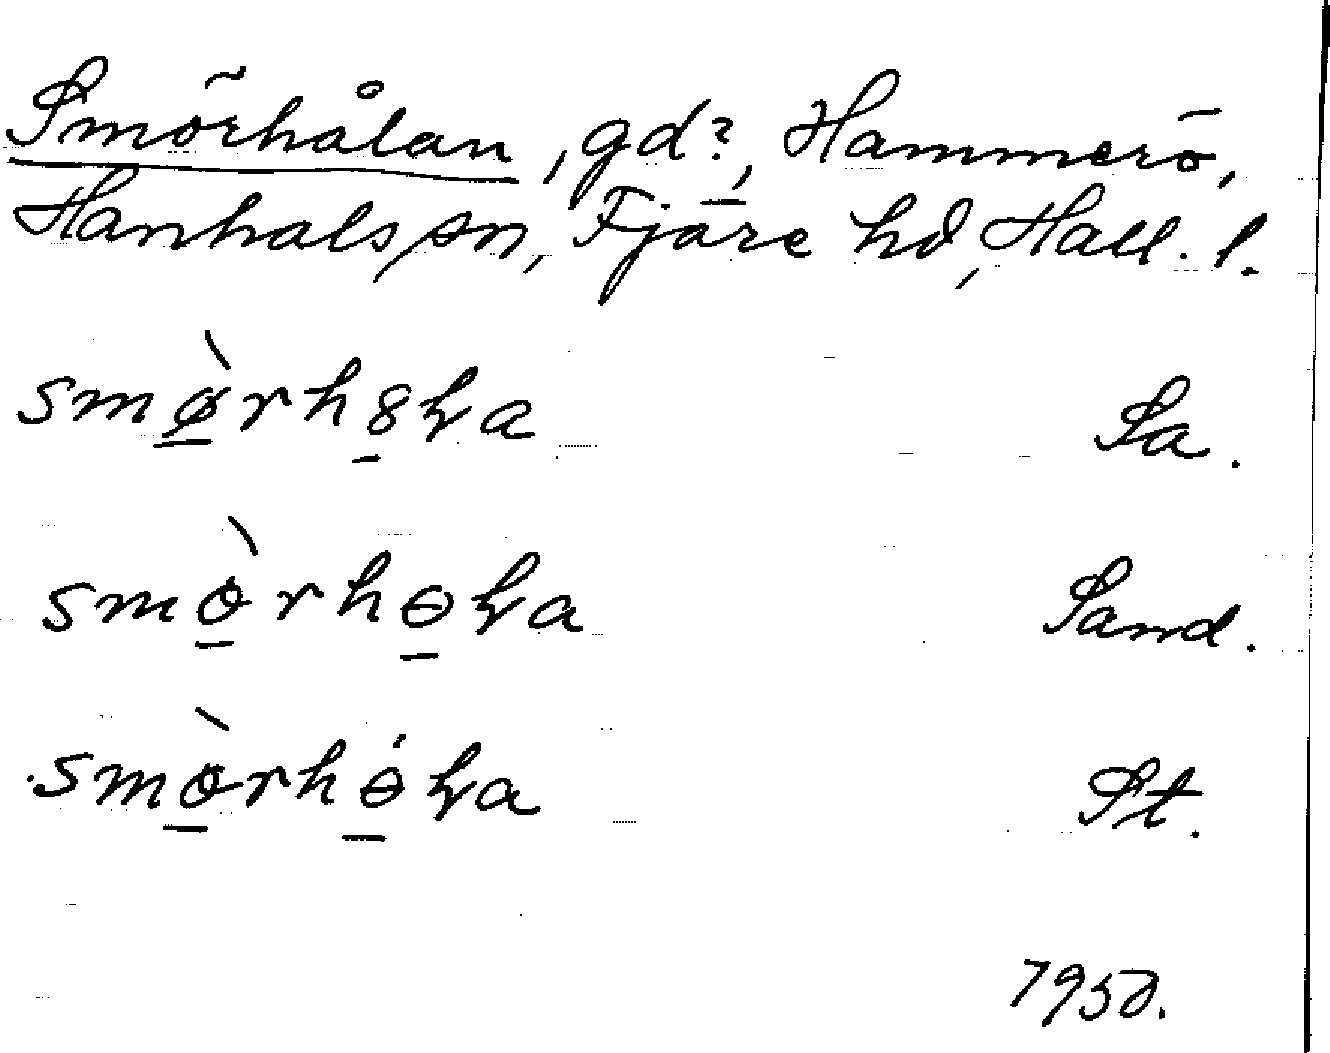 Smörhålan, gd?, Hammerö,
Hanhals sn, Fjäre hd, Hall. l.
smø̲̀rh8̲ɽa Sa.
smò̲rhɵ̲ɽa Sand.
smò̲rhɵ̲́ɽa St.
1950.